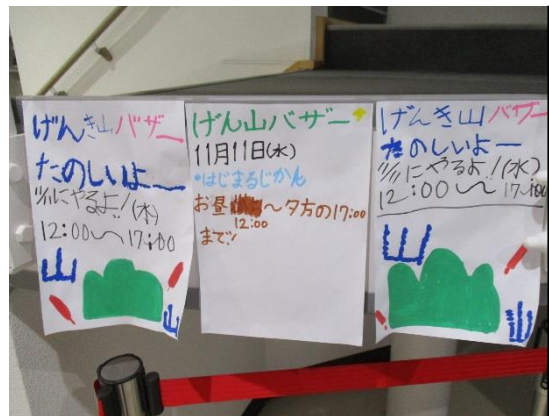 げんき山バザー
たのしいよー
11/11にやるよ!(水)
12:00〜17:00
山
山
げん山バザー
11月11日(水)
・はじまるじかん
お昼〜夕方の17:00
12:00
まで!
げんき山バザー
たのしいよー
11/11にやるよ!(水)
12:00〜17:00
山
山